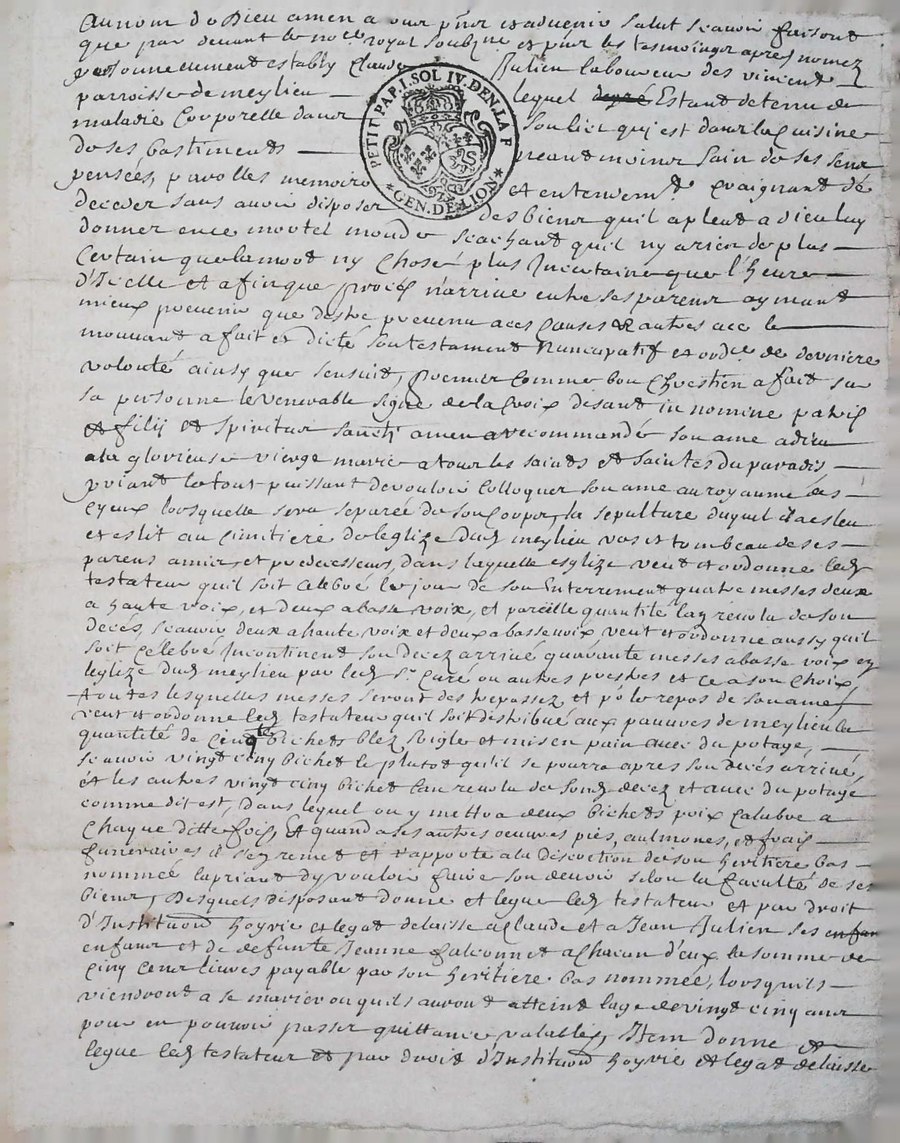 Au nom de Dieu amen a tous pnts et advenir salut scavoir faisons
que par devant le nore royal soubzne et pnts les tesmoings apres nomez
personnellement estably Claude Julien laboureur des vincent
PETIT PAP. 1. SOL IV. DEN. LA F
* GEN. DE LION *
parroisse de meylieu — lequel depré Estant detenu de
maladie Corporelle dans son lict qui est dans la Cuisine
de ses bastiments — neantmoins sain de ses sens
pensées, parolles memoire et entendemt. Craignant de
deceder sans avoir disposer des biens quil a pleut a dieu luy
donner en ce mortel monde scachant quil ny a rien de plus —
Certain que la mort ny Chose plus Incertaine que l'heure —
d'Icelle et afin que proces n'arrive entre ses parens aymant
mieux prevenir que destre prevenu a ces Causes & autres a ce le —
mouvant a fait et dicté son testament Nuncupatif et ordre de derniere
volonté ainsy que sensuit, premier Comme bon Chrestien a fait sur
sa personne le venerable signe de la Croix disant in nomine patris
et filij et spiritus sancti amen a recommandé son ame a dieu
a la glorieuse vierge marie a tous les saints et saintes du paradis —
priant le tout puissant de vouloir Colloquer son ame au royaume des —
Cyeux lorsquelle sera separée de son Corps, la sepulture duquel il a esleu
et eslit au Cimitiere de leglize dud meylieu vas et tombeau de ses —
parens amis, et predecesseurs, dans laquelle esglize veut et ordonne led
testateur quil soit Celebré le jour de son Enterrement quatre messes deux
a haute voix, et deux a basse voix, et pareille quantité lan revolu de son
decés, scavoir deux a haute voix et deux a basse voix veut et ordonne aussy quil
soit Celebré Incontinent son decez arrivé quarante messes a basse voix en
leglize dud meylieu par led sr. Curé ou autres prestres et ce a son Choix
toutes lesquelles messes seront des trepassez et pr le repos de son ame
veut et ordonne led testateur quil soit distribué aux pauvres de meylieu la
quantité de Cinqte bichets blez seigle et mis en pain avec du potage, —
scavoir vingt cinq bichet le plutot qu'il se pourra apres son decés arrivé,
et les autres vingt cinq bichet lan revolu de sond decez et avec du potage
comme dit est, dans lequel on y mettra deux bichets poix Calabre a
Chaque ditte fois, Et quand a ses autres oeuvres pies, aulmones, et frais
funeraires il s'en remet et rapporte a la discretion de son heritiere bas —
nommée la priant dy vouloir faire son devoir selon la faculté de ses
biens, Desquels disposant donne et legue led testateur et par droit
d'Institution hoyrie et legat delaisse a Claude et a Jean Julien ses enfan
enfans et de defunte Jeanne falconnet a Chacun d'eux la somme de
Cinq Cens livres payable par son heritiere bas nommée, lorsquils —
viendront a se marier ou quils auront atteint lage de vingt cinq ans
pour en pouvoir passer quittance valables, Item donne et —
legue led testateur et par droit d'Institution hoyrie et legat delaisse